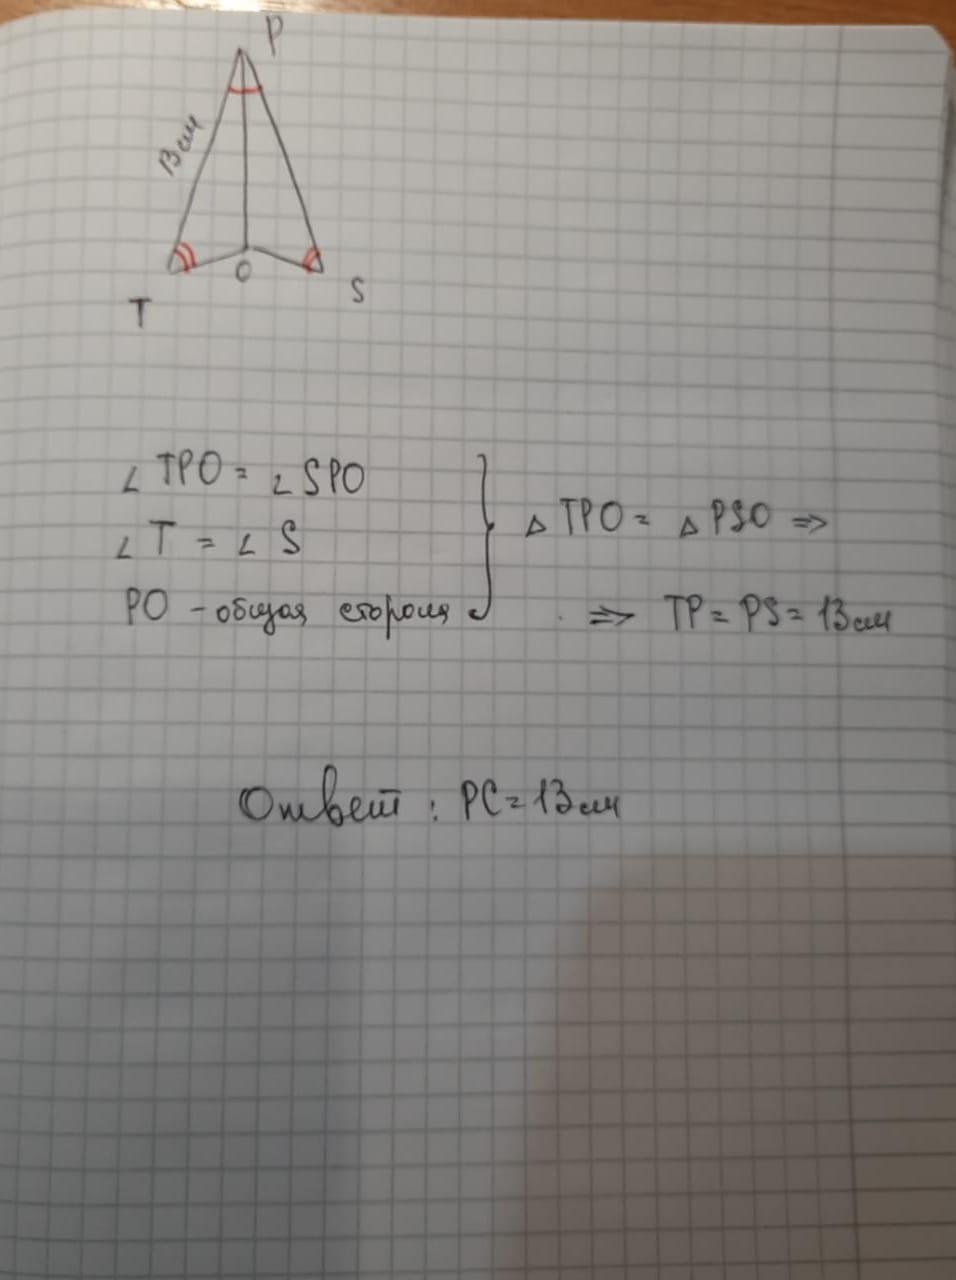 P
13см
O
S
T
∠ TPO = ∠ SPO
∠ T = ∠ S
PO - общая сторона
△ TPO = △ PSO ⇒
⇒ TP = PS = 13см
Ответ : PC = 13см